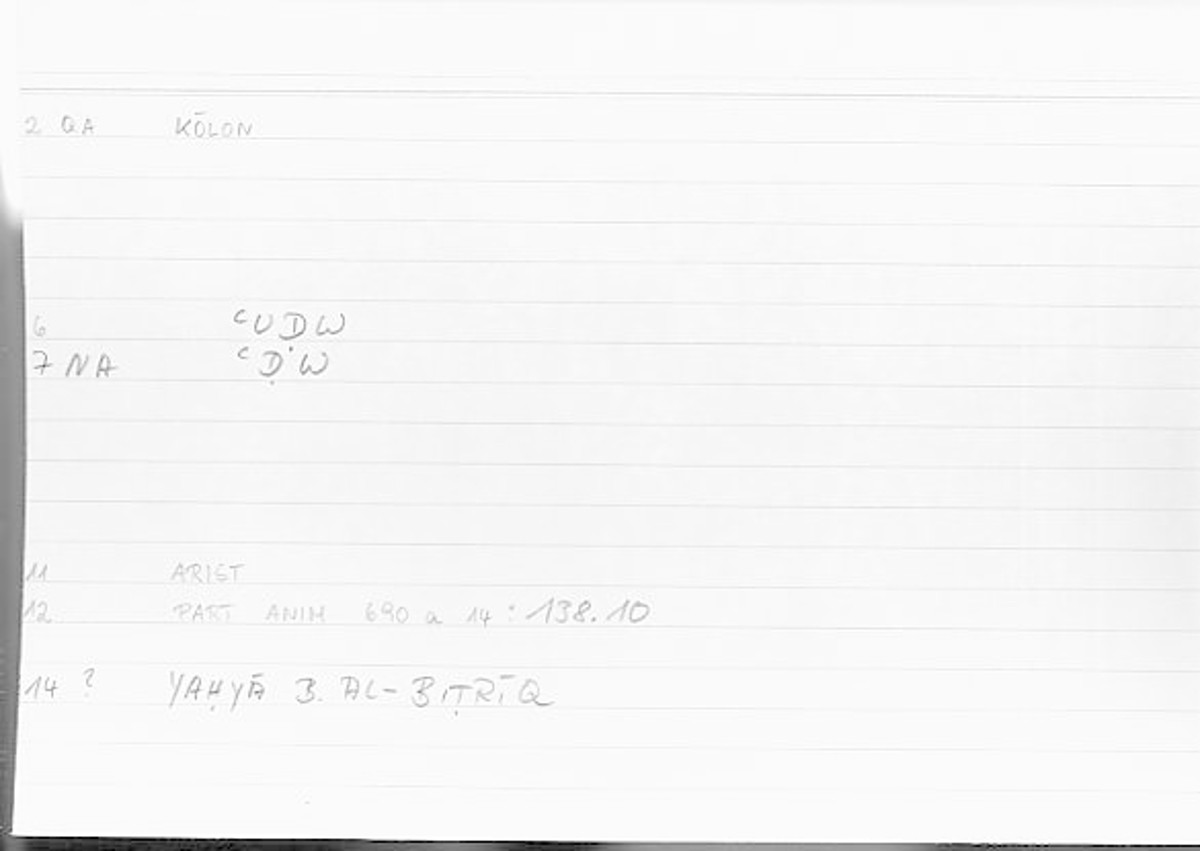 2 QA KŌLON
6 ʿUḌW
7 NA ʿḌW
11 ARIST
12 PART ANIM 690 a 14 : 138.10
14 ? YAḤYĀ B. AL-BIṬRĪQ